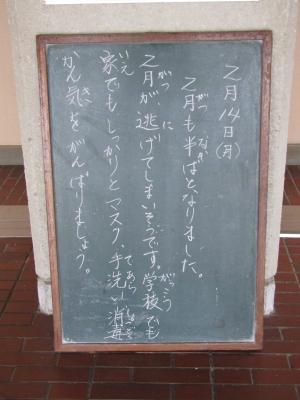 2月14日(月)
2月も半ばとなりました。
2月が、逃げてしまいそうです。学校でも
家でもしっかりとマスク、手洗い、消毒
かん気をがんばりましょう。